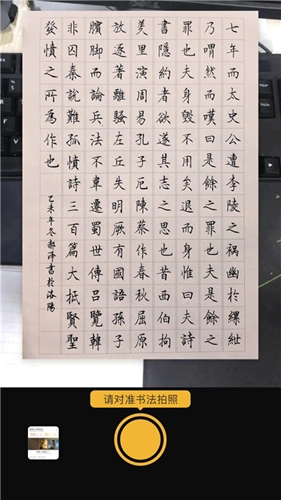 七年而太史公遭李陵之禍幽於縲紲
乃喟然而嘆曰是餘之罪也夫是餘之
罪也夫身毀不用矣退而深惟曰夫詩
書隱約者欲遂其志之思也昔西伯拘
羑里演周易孔子厄陳蔡作春秋屈原
放逐著離騷左丘失明厥有國語孫子
臏腳而論兵法不韋遷蜀世傳呂覽韓
非囚秦說難孤憤詩三百篇大抵賢聖
發憤之所為作也
乙未年冬書於洛陽
请对准书法拍照